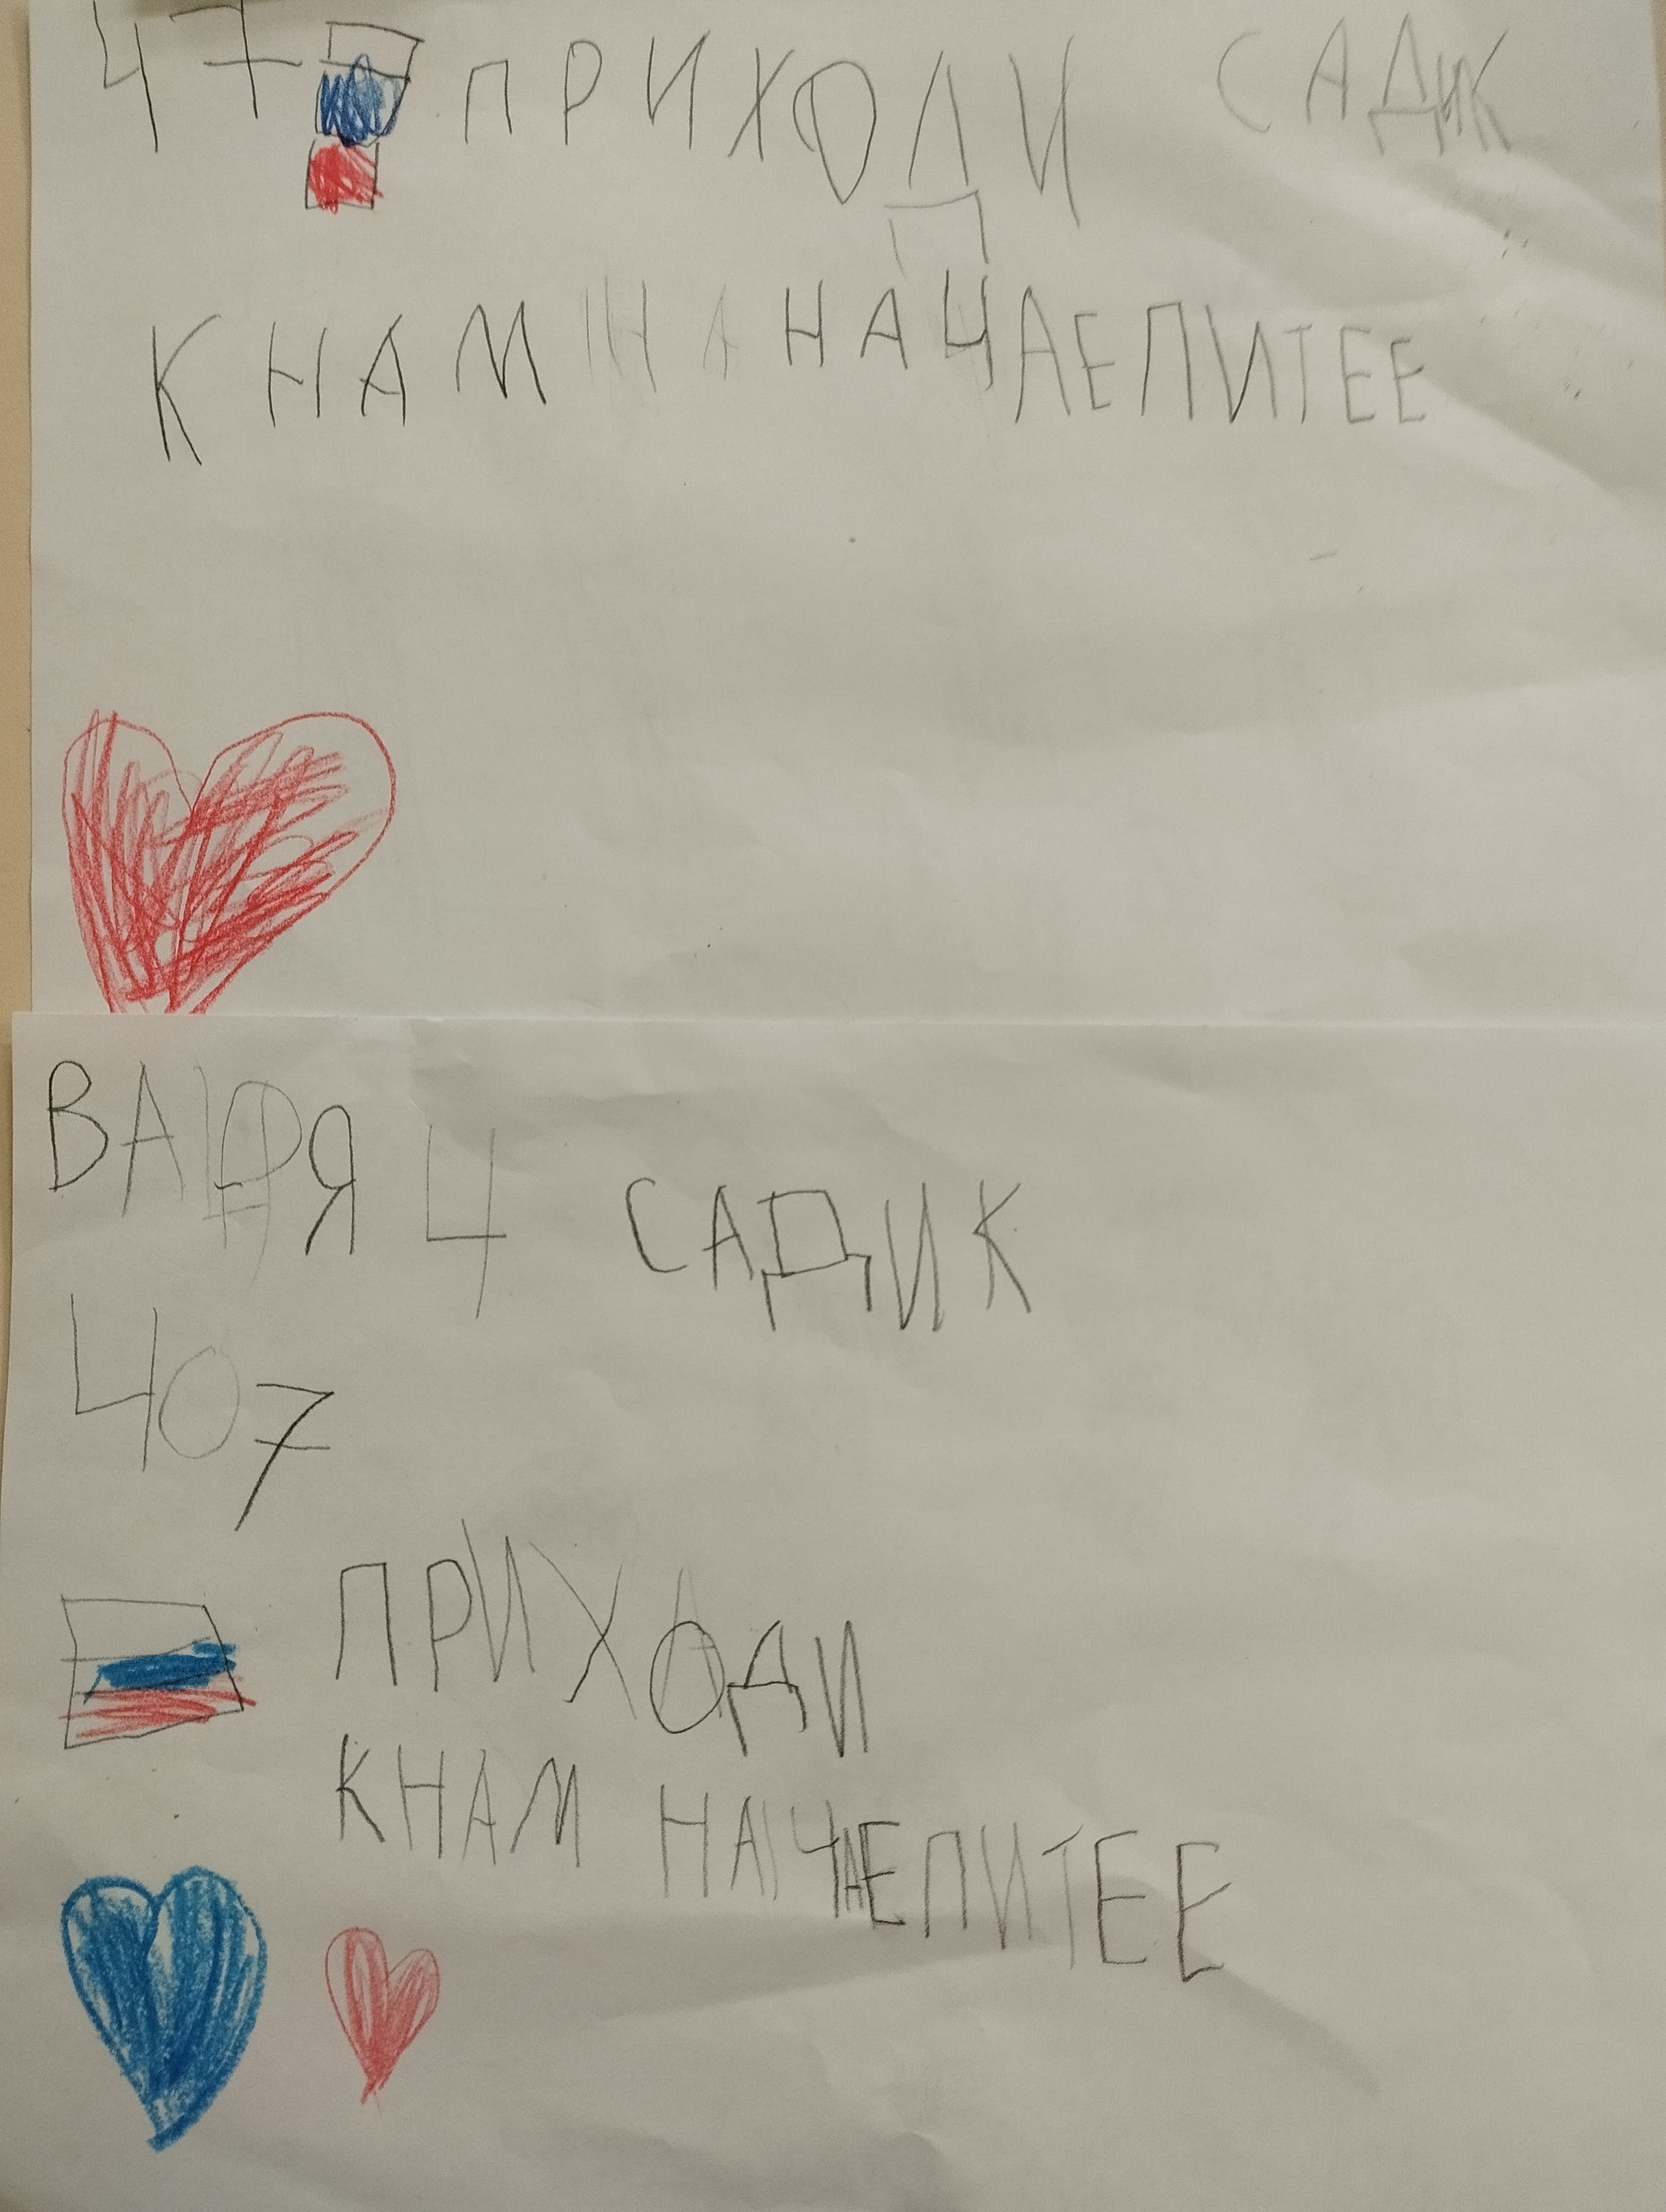 47 ПРИХОДИ САДИК
КНАМ НА НАЧАЕПИТЕЕ
ВАРЯ 4 САДИК
407
ПРИХОДИ
КНАМ НАЧАЕПИТЕЕ